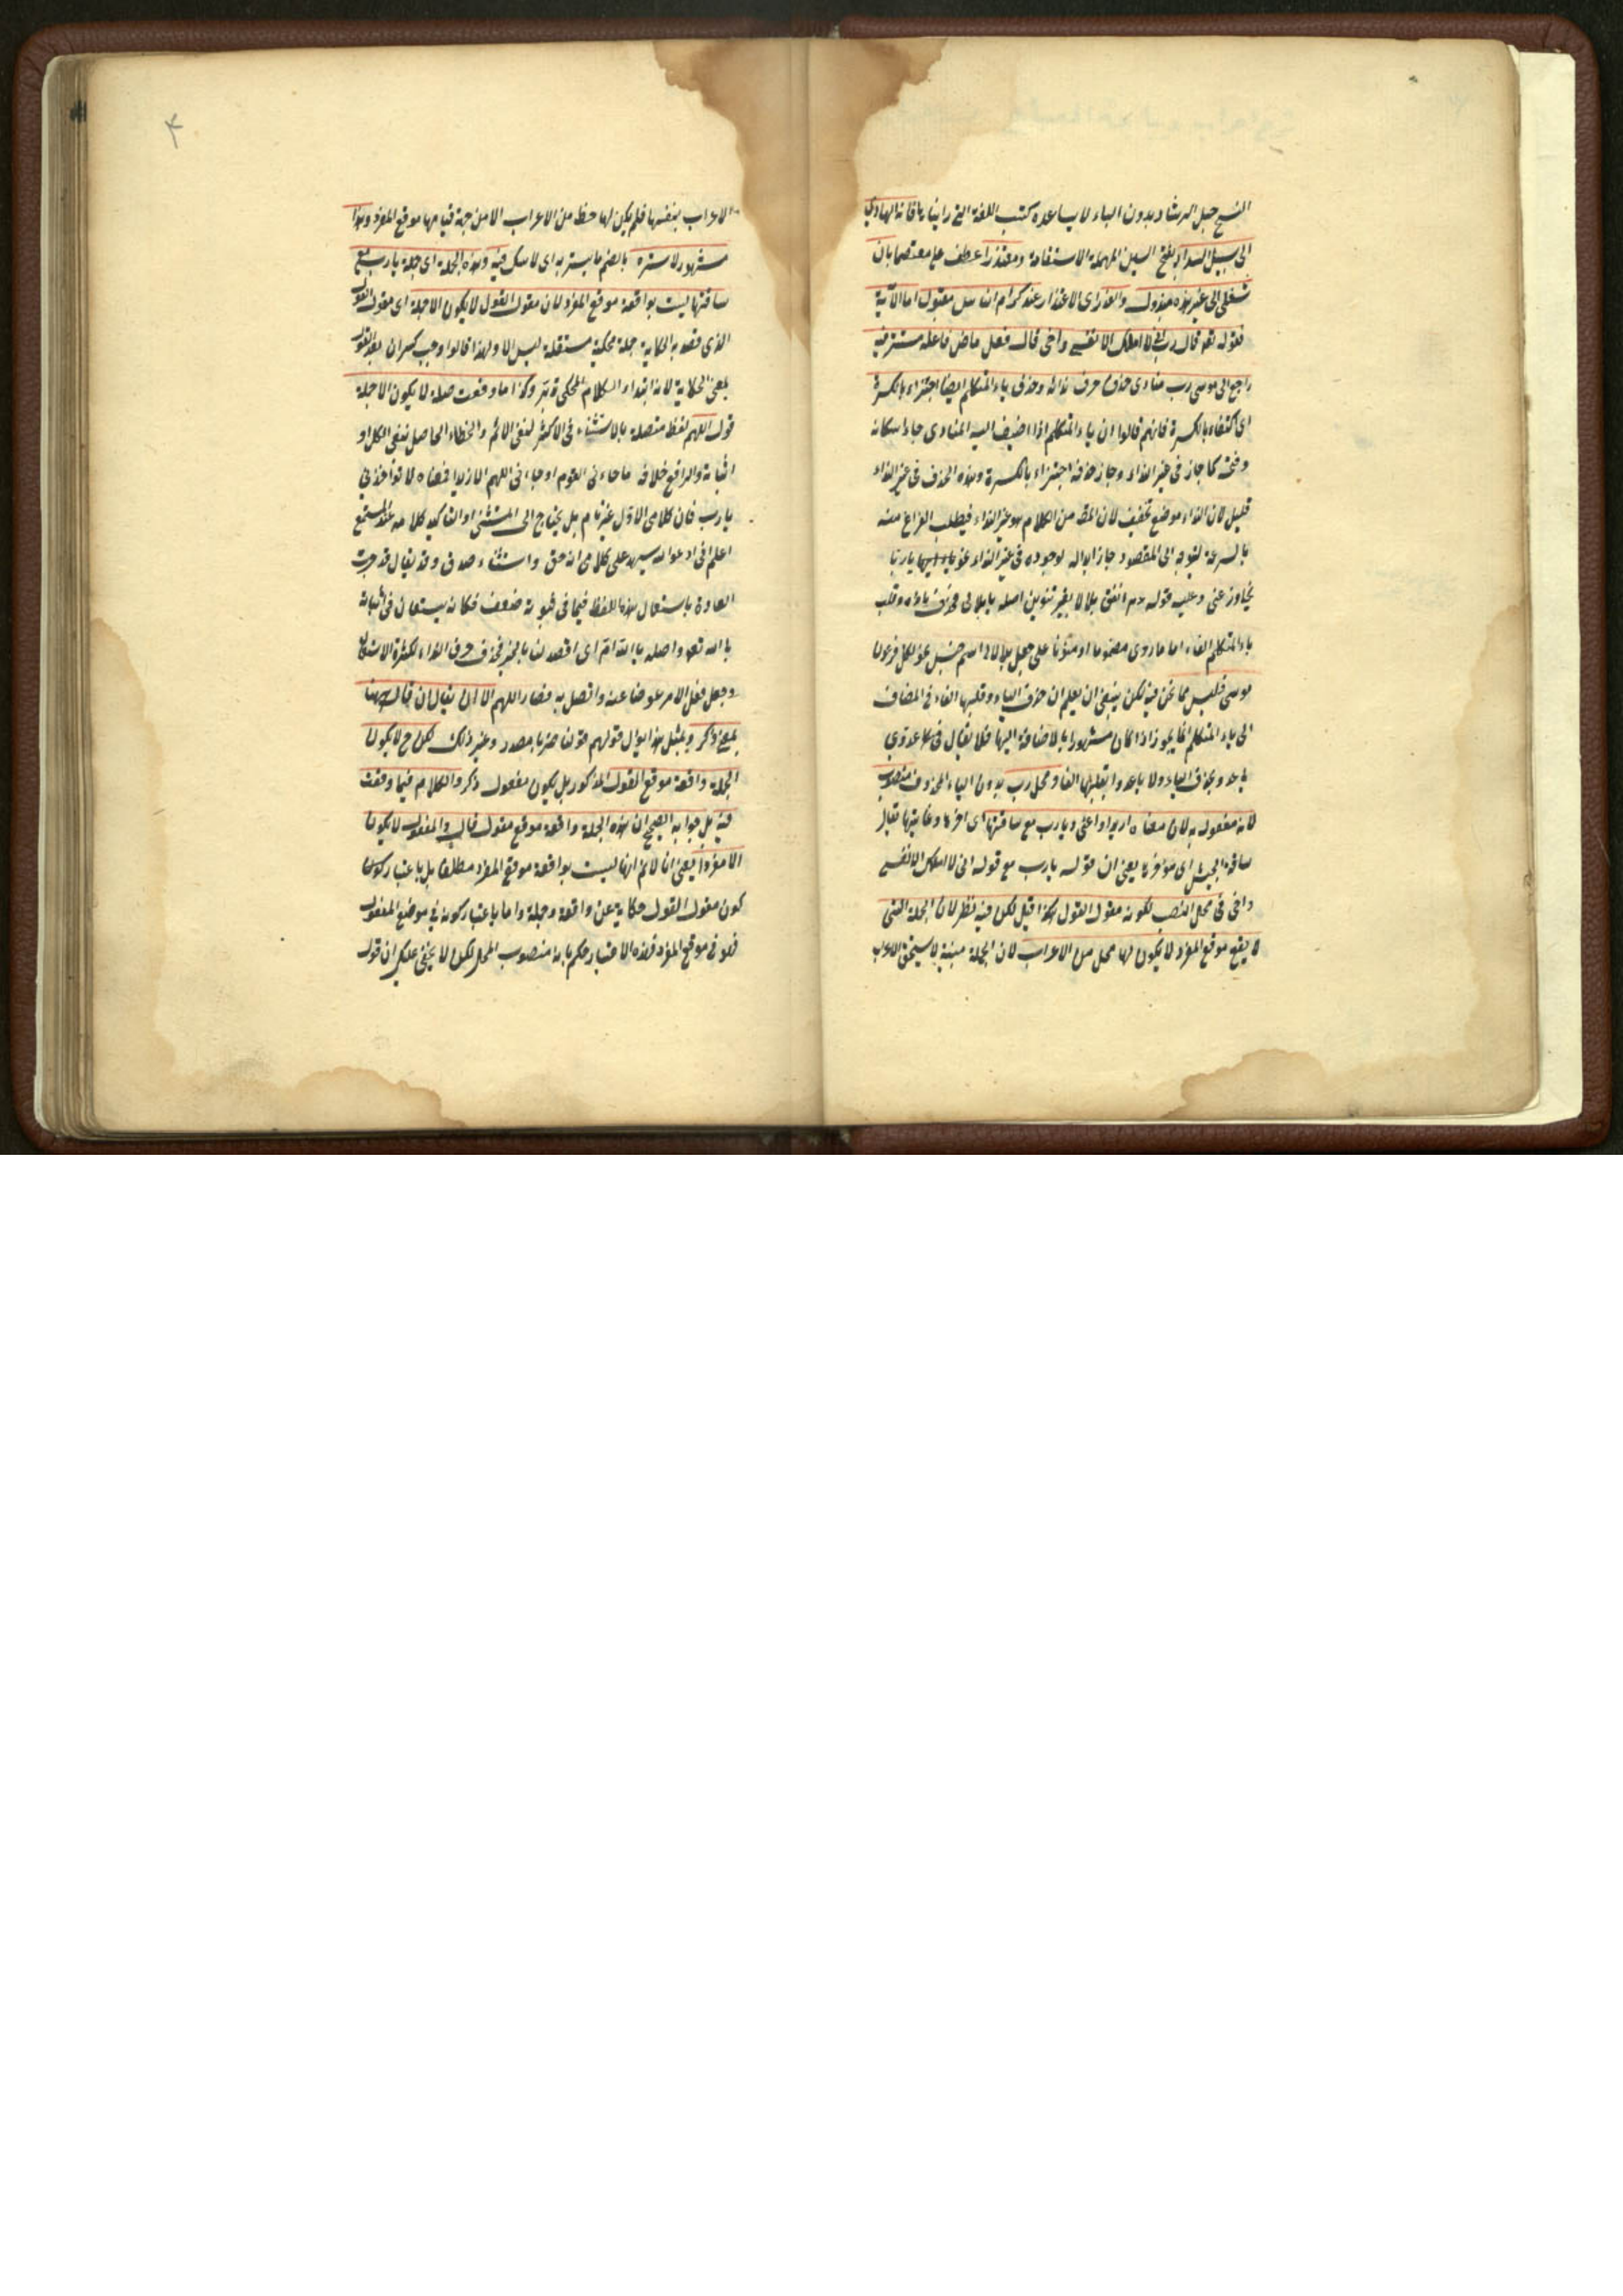 النسخ حبل الرشاد بدون الباء لا يساعده كتب اللغة التى رايناها فانه الهادى
الى سبيل السداد بفتح السين المهملة الاستقامة ومعتذرا عطف على معتصما بان
شغلى الى غير هذه مبذول والعذر اى الاعتذار عند كرام الناس مقبول اما الآية
فقوله تعم قال رب انى لا املك الا نفسى واخى قال فعل ماض فاعله مستتر فيه
راجع الى موسى رب منادى حذف حرف ندائه وحذف ياء المتكلم ايضا اجتزاء بالكسرة
اى اكتفاء بالكسرة فانهم قالوا ان ياء المتكلم اذا اضيف اليه المنادى جاء اسكانه
وفتحه كما جاز فى غير النداء وجاز حذفه اجتزاء بالكسرة وهذه الحذف فى غير النداء
قليل لان النداء موضع تخفيف لان المقص من الكلام هو غير النداء فيطلب الفراغ منه
بالسرعة ليتوجه الى المقصود جاز ابداله لوجوده فى غير النداء نحو يا ربا
تجاوز عنى وعليه قوله عم انفق بلالا بغير تنوين اصله يا بلالى فحذف ياؤه وقلب
ياء المتكلم الفاء اما ما روى مضموما او منونا على جعل بلالا اسم جنس نحو لكل فرعون
موسى فليس مما نحن فيه لكن ينبغى ان يعلم ان حذف الياء وقلبها الفاء فى المضاف
الى ياء المتكلم انما يجوز اذا كان مشهورا بالاضافة اليها فلا يقال فى يا عدوى
يا عدو بحذف الياء ولا يا عدوا بقلبها الفا ومحل رب بدون الياء المحذوف منصوب
لانه مفعول به لان معناه اريد او اعنى ويا رب مع ساقتها اى اخرها وغايتها يقال
ساقة الجيش اى مؤخره يعنى ان قوله يا رب مع قوله انى لا املك الا نفسى
واخى فى محل النصب لكونه مقول القول هكذا قيل لكن فيه نظر لان الجملة التى
لا يقع موقع المفرد لا يكون لها محل من الاعراب لان الجملة مبنية لا يستحق الاعراب
الاعراب بنفسها فلم يكن لها حظ من الاعراب الا من جهة قيامها موقع المفرد وهذا
مشهور لا ستره بالضم ما يستر به اى لا شك فيه وهذه الجملة اى جملة يا رب مع
ساقتها ليست بواقعة موقع المفرد لان مقول القول لا يكون الا جملة اى مقول القول
الذى قصد به الحكاية جملة محكية مستقلة ليس الا ولهذا قالوا وجب كسر ان بعد القول
بمعنى الحكاية لانه ابتداء الكلام المحكى وكذا ما وقعت صلة لا يكون الا جملة
قول اللهم لفظ متصلة بالاستثناء فى الاكثر لنفى الاثم والخطاء الحاصل بنفى الكل او
اثباته والرافع خلافه ما جاءنى القوم او جاءنى اللهم الا زيدا فمعناه لا تؤاخذنى
يا رب فان كلامى الاول غير تام بل يحتاج الى المستثنى او التأكيد كلامه عند المستمع
اعلم انى ادعو الله سيشهد على كلامى انه حق واستثناء صدق وقد يقال قد جرت
العادة باستعمال هذا اللفظ فيما فى ثبوته ضعف فكانه يستعان فى اثباته
بالله تعم واصله يا الله ام اى اقصد لنا بالخير فحذف حرف النداء لكثرة الاستعمال
وجعل فعل الامر عوضا عنه واتصل به فصار اللهم الا ان يقال ان قال ههنا
بمعنى ذكر وبمثل هذا اول قولهم قولنا ضربا مصدر وغير ذلك لكن ح لا يكون
الجملة واقعة موقع المقول المذكور بل يكون مفعول ذكر والكلام فيما وقعت
فيه بل جوابه الصحيح ان هذه الجملة واقعة موقع مقول قال والمفعول لا يكون
الا مفردا يعنى انا لا نم انها ليست بواقعة موقع المفرد مطلقا بل باعتبار كون
كون مقول القول حكاية عن واقعة وجملة واما باعتبار كونه فى موضع المفعول
فهو فى موقع المفرد فهذه الاعتبار حكم بانه منصوب المحل لكن لا يخفى عليك ان قول